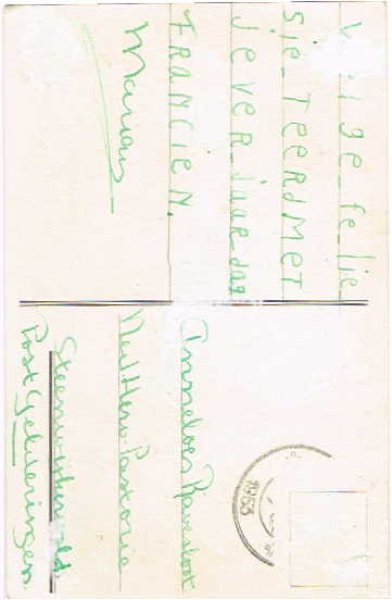 fe_lie_
sie_TeerdmeT
je ver_jaardag
FRANCIEN.
Marian
Anneloes Ravesloot
Ned. Herv. Pastorie
Steenwijkerwold
Post Gelderingen.